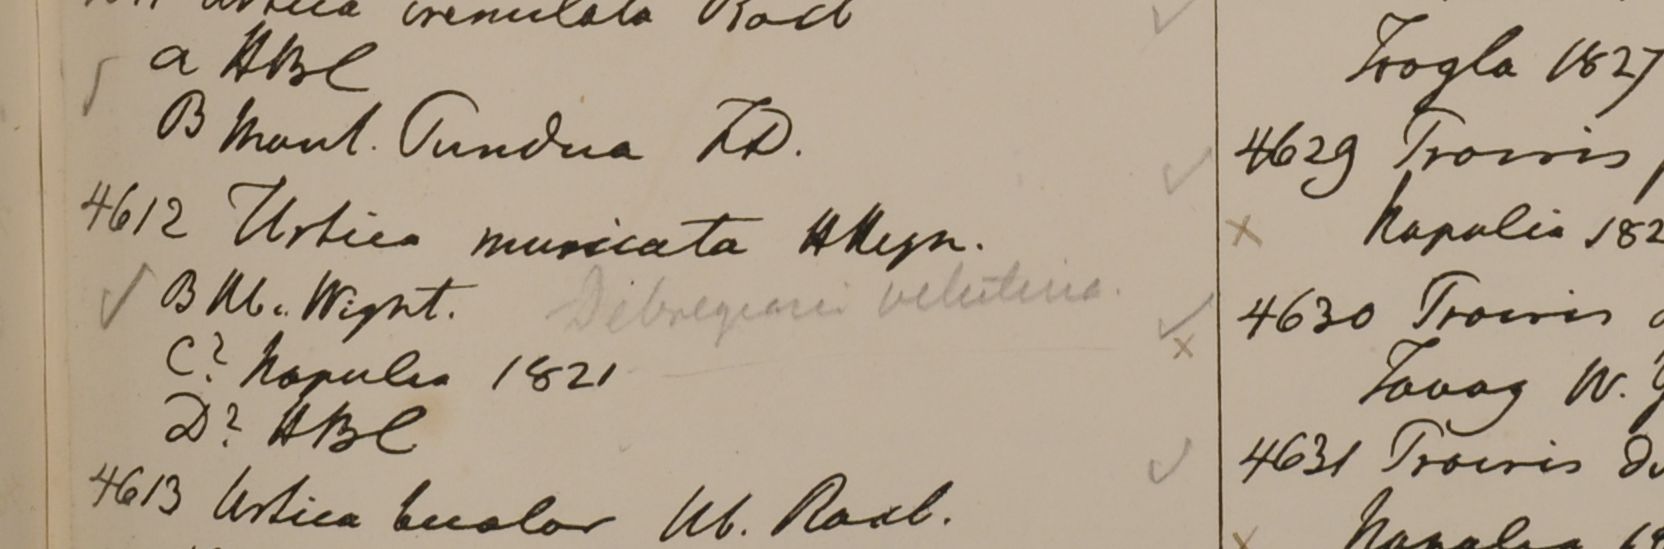 Urtica crenulata Roxb
a HBC
B Mont. Pundua FD.
4612 Urtica muricata HHeyn.
B Hb. Wight. Debregeasia velutina.
C? Napalia 1821
D? HBC
4613 Urtica bicolor Hb. Roxb.
1827
4629
Napalia 182
4630
Tavoy W. G
4631
Napalia 18